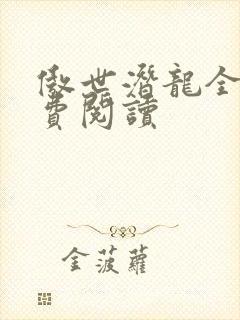 傲世潛龍全
費閱讀
金菠蘿